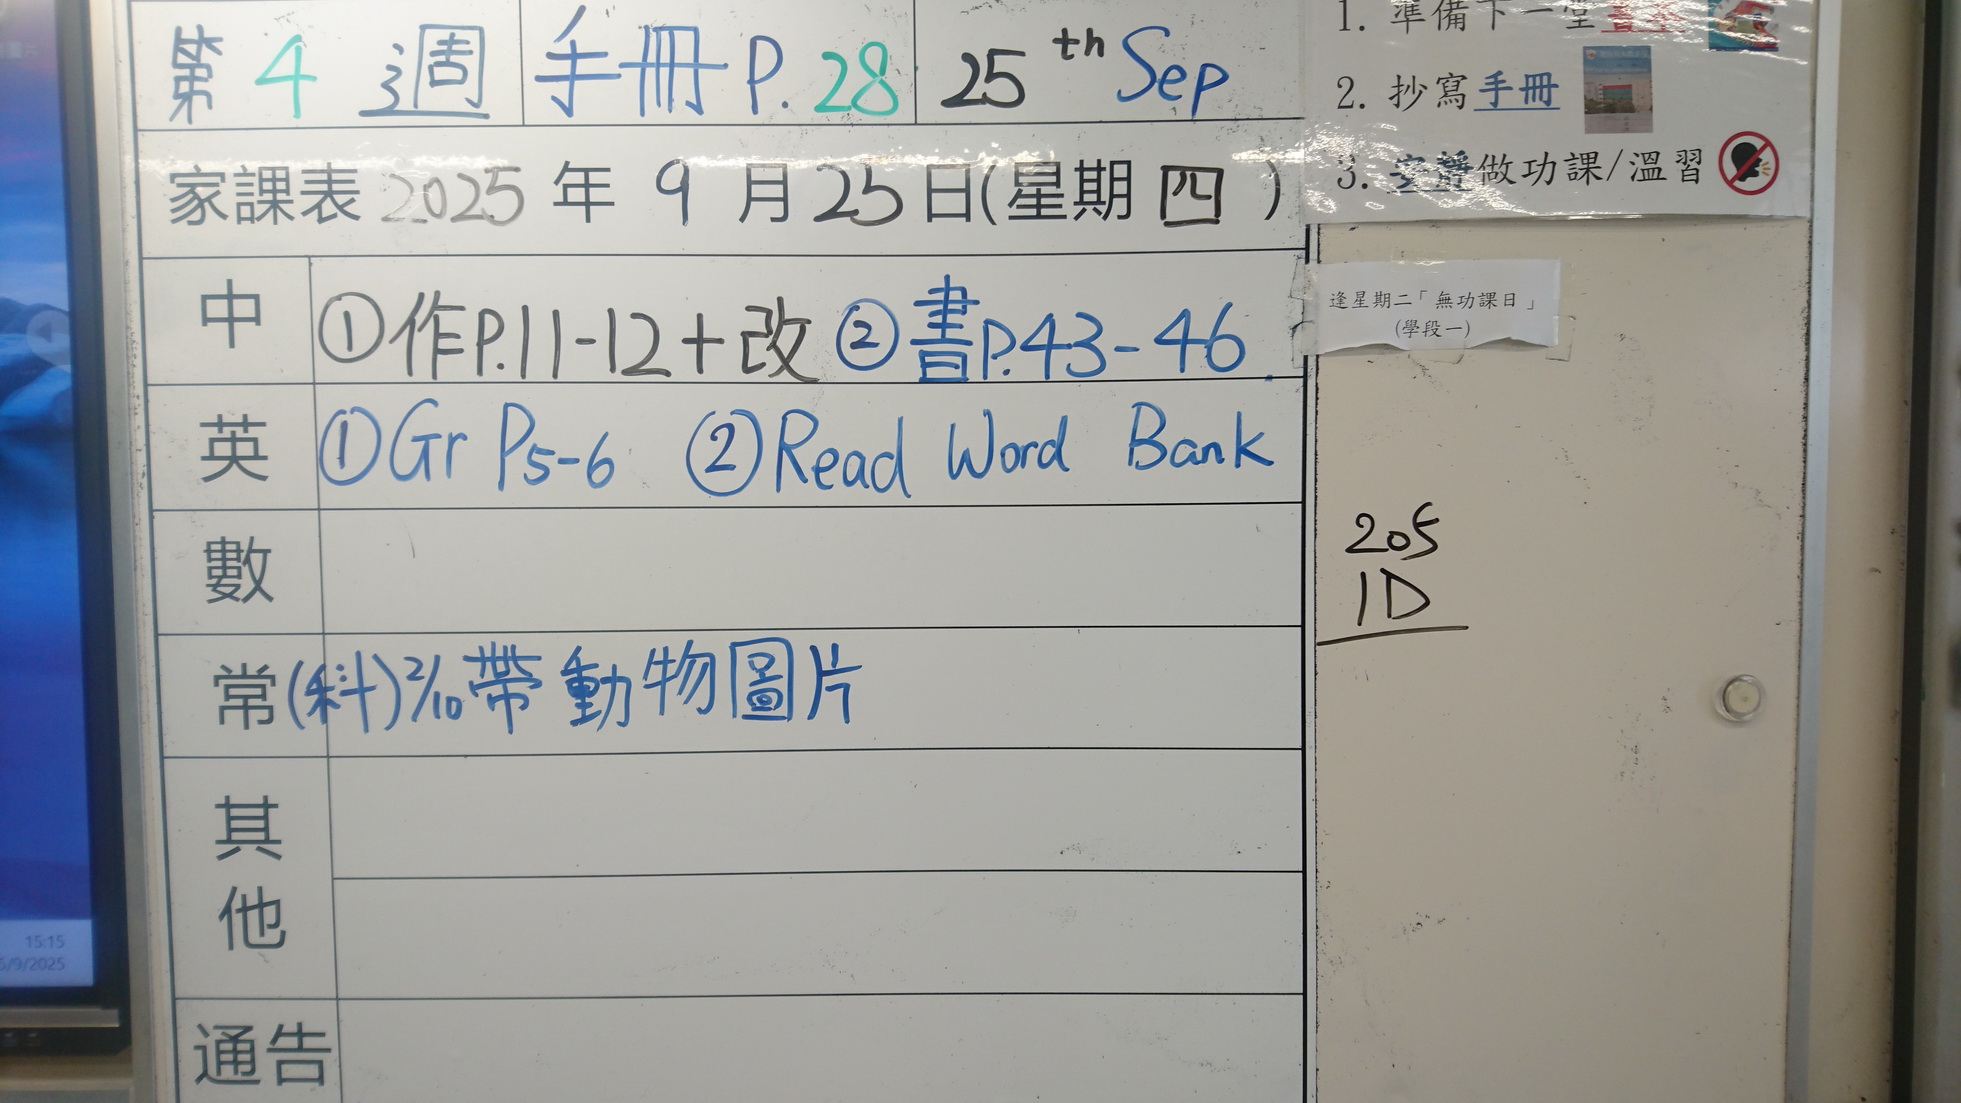 第4週 手冊P.28 25th Sep
家課表2025年9月25日(星期四)
中 ①作P.11-12+改 ②書P.43-46
英 ①Gr P5-6 ②Read Word Bank
數
常 (科)2/10帶動物圖片
其他
通告
1. 準備下一堂
2. 抄寫手冊
3. 安靜做功課/溫習
逢星期二「無功課日」
(學段一)
205
1D
15:15
5/9/2025